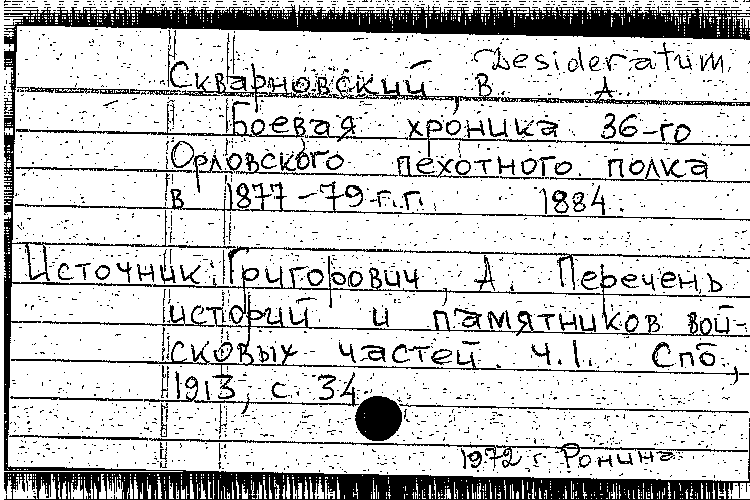 Desideratum
Скварновский, В. А.
Боевая хроника 36-го
Орловского пехотного полка
в 1877-79 г.г. 1884.
Источник: Григорович, А. Перечень
историй и памятников вой-
сковых частей. Ч.I. Спб.,
1913, с. 34
1972 г. Ронина